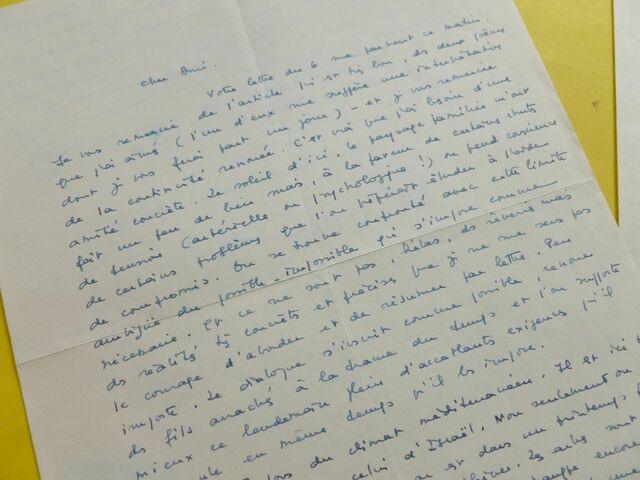 Cher Ami.
Votre lettre du 6 me parvient ce matin.
Je vous remercie de l'article, ici et très bon, des deux poèmes
que j'ai aimés (l'un d'eux me suggère une interprétation
dont je vous ferai part un jour) - et je vous remercie
de la continuité renouée. C'est vrai que j'ai besoin d'une
amitié concrète. Le soleil d'ici, le paysage familier m'ont
fait un peu de bien mais, à la faveur de certaines chutes
de tension (artérielle ou psychologique!) on prend conscience
de certains problèmes que l'on répugnait étudier à l'ordre
de compromis. On se trouve confronté avec cette limite
ambiguë du possible-impossible qui s'impose comme
nécessaire. Et ce ne sont pas, hélas, des rêveries mais
des réalités si concrètes et précises que je ne me sens pas
le courage d'aborder et de résumer par lettre. Peu
importe. Le dialogue s'inscrit comme possible, renoue
des fils arrachés à la trame du temps et l'on supporte
mieux ce lendemain plein d'accablantes exigences qu'il
en même temps qu'il les impose.
du climat méditerranéen. Il est ici
celui d'Israël. Non seulement on
est dans un printemps
Les arbres sont
encore